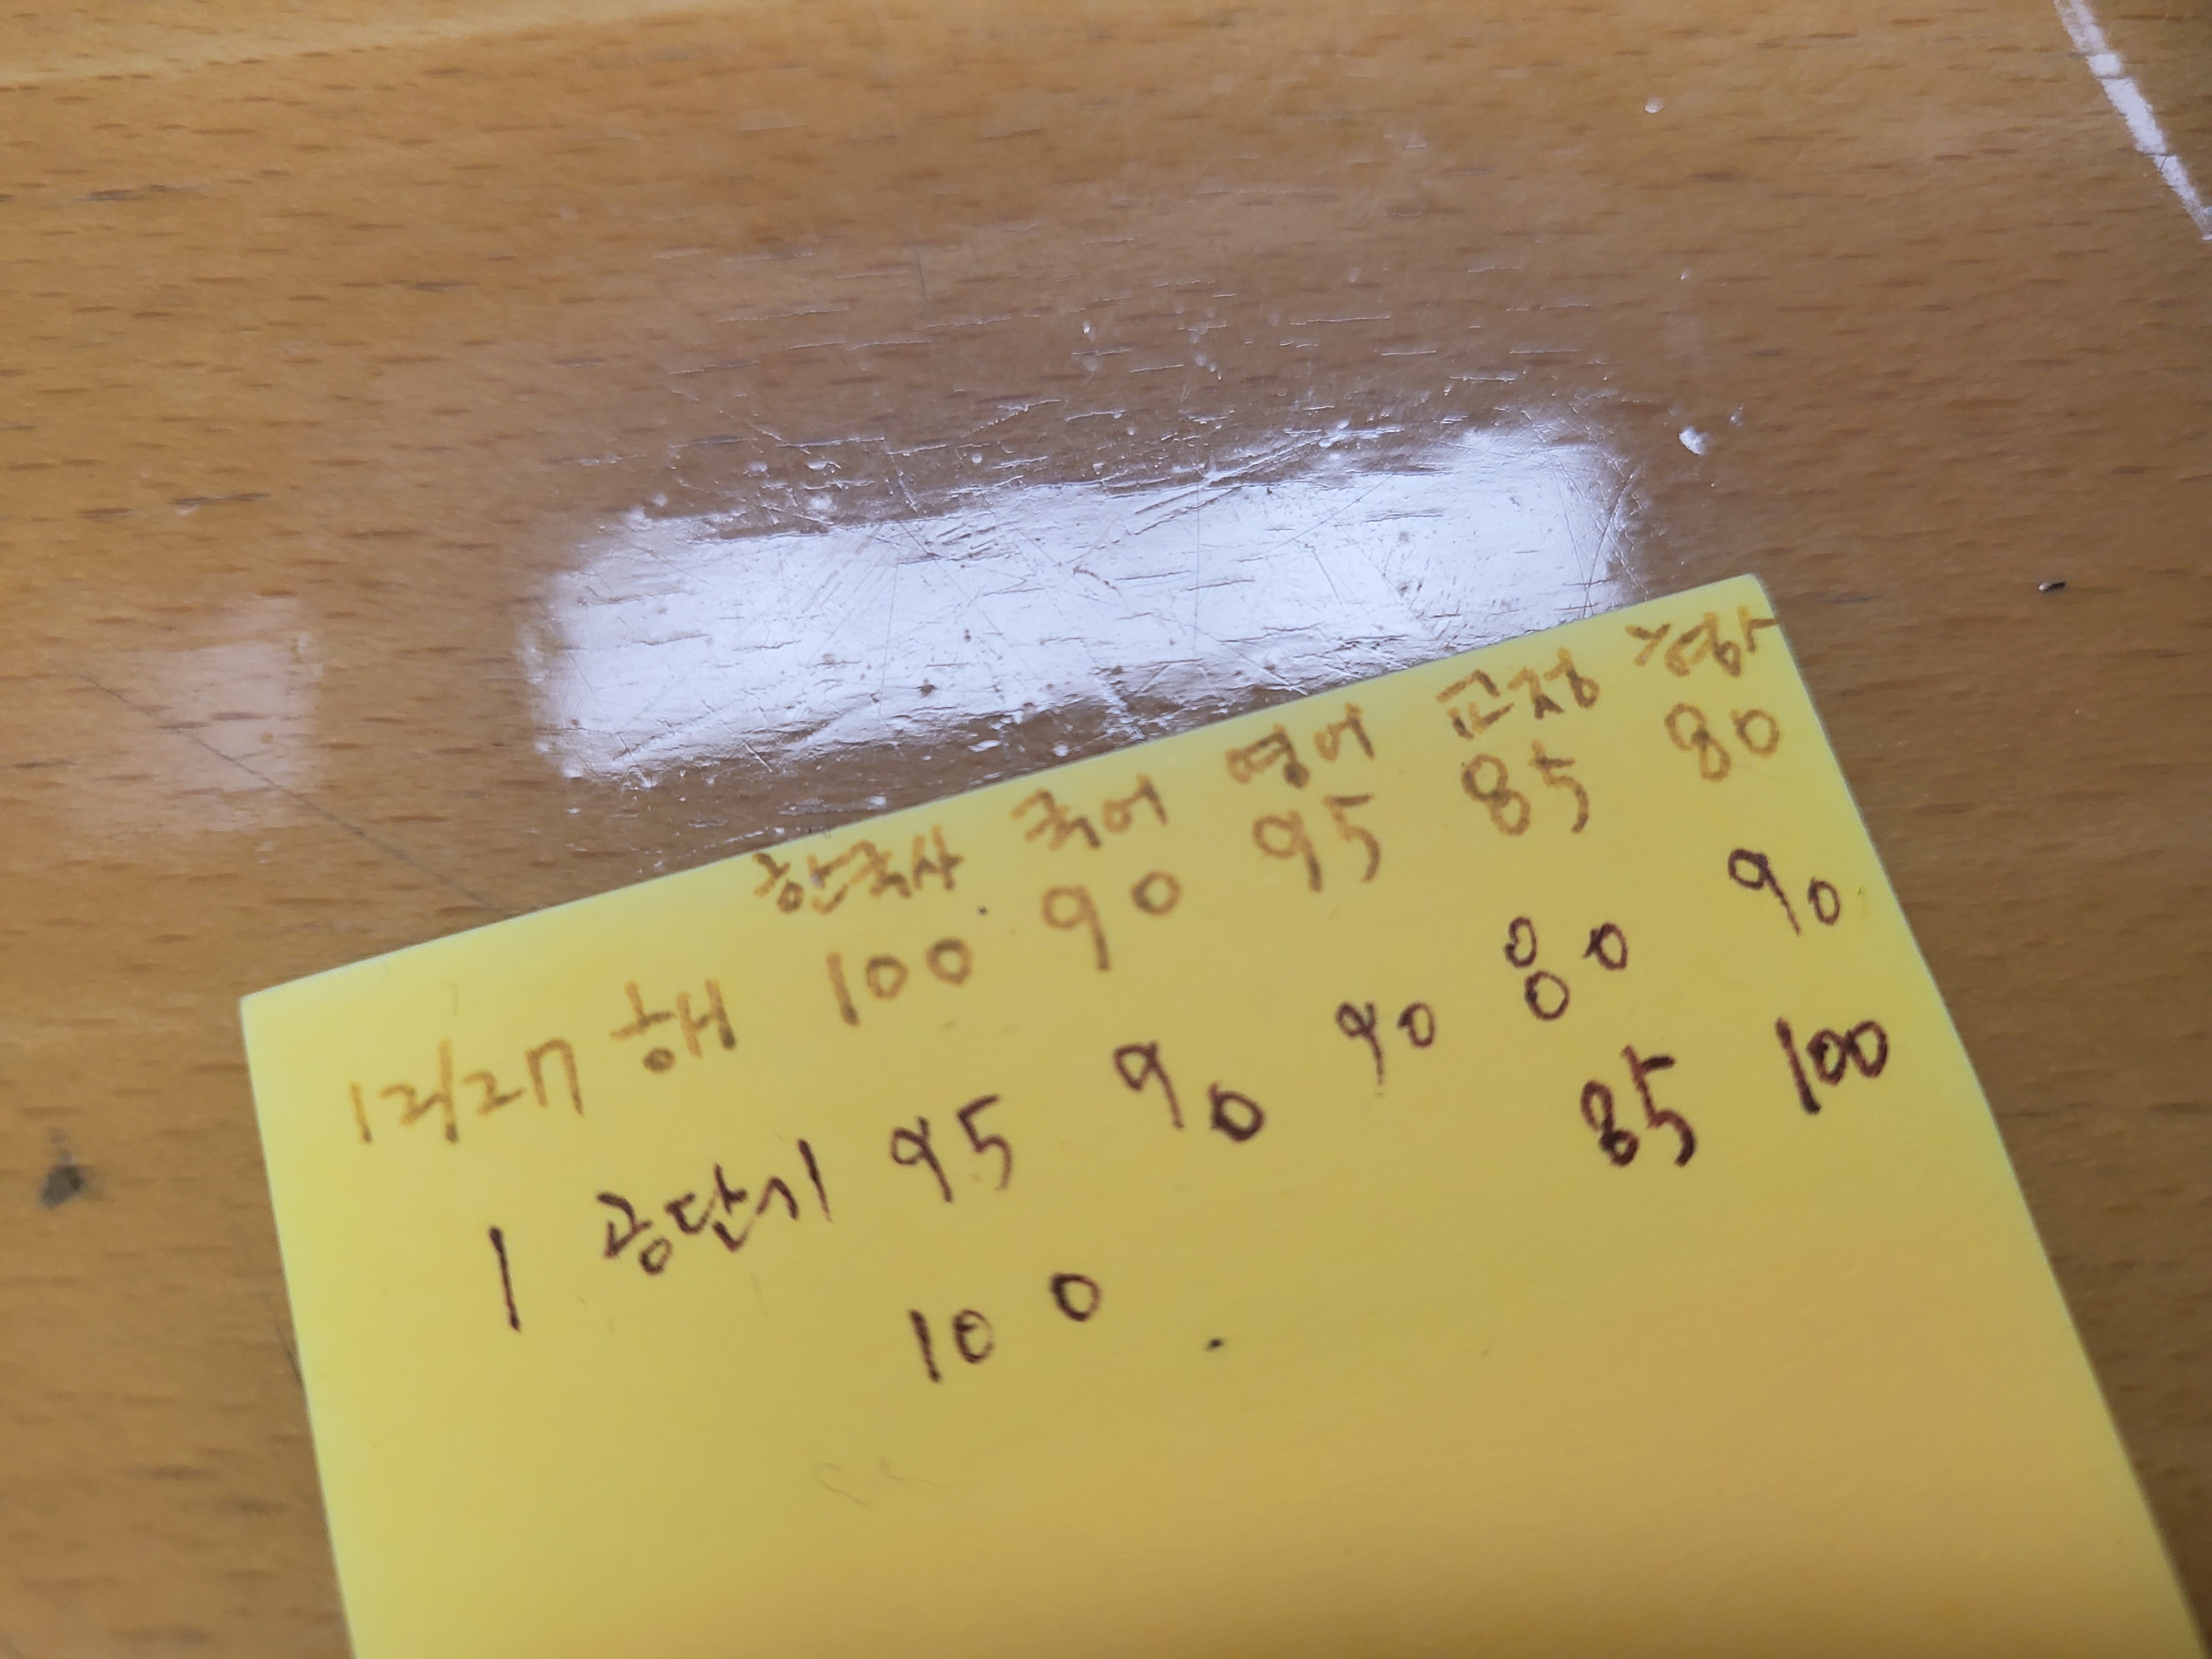 한국사 국어 영어 교정 형사
12/27 해 100 90 95 85 80
1 공단기 95 90 90 80 90
100 85 100